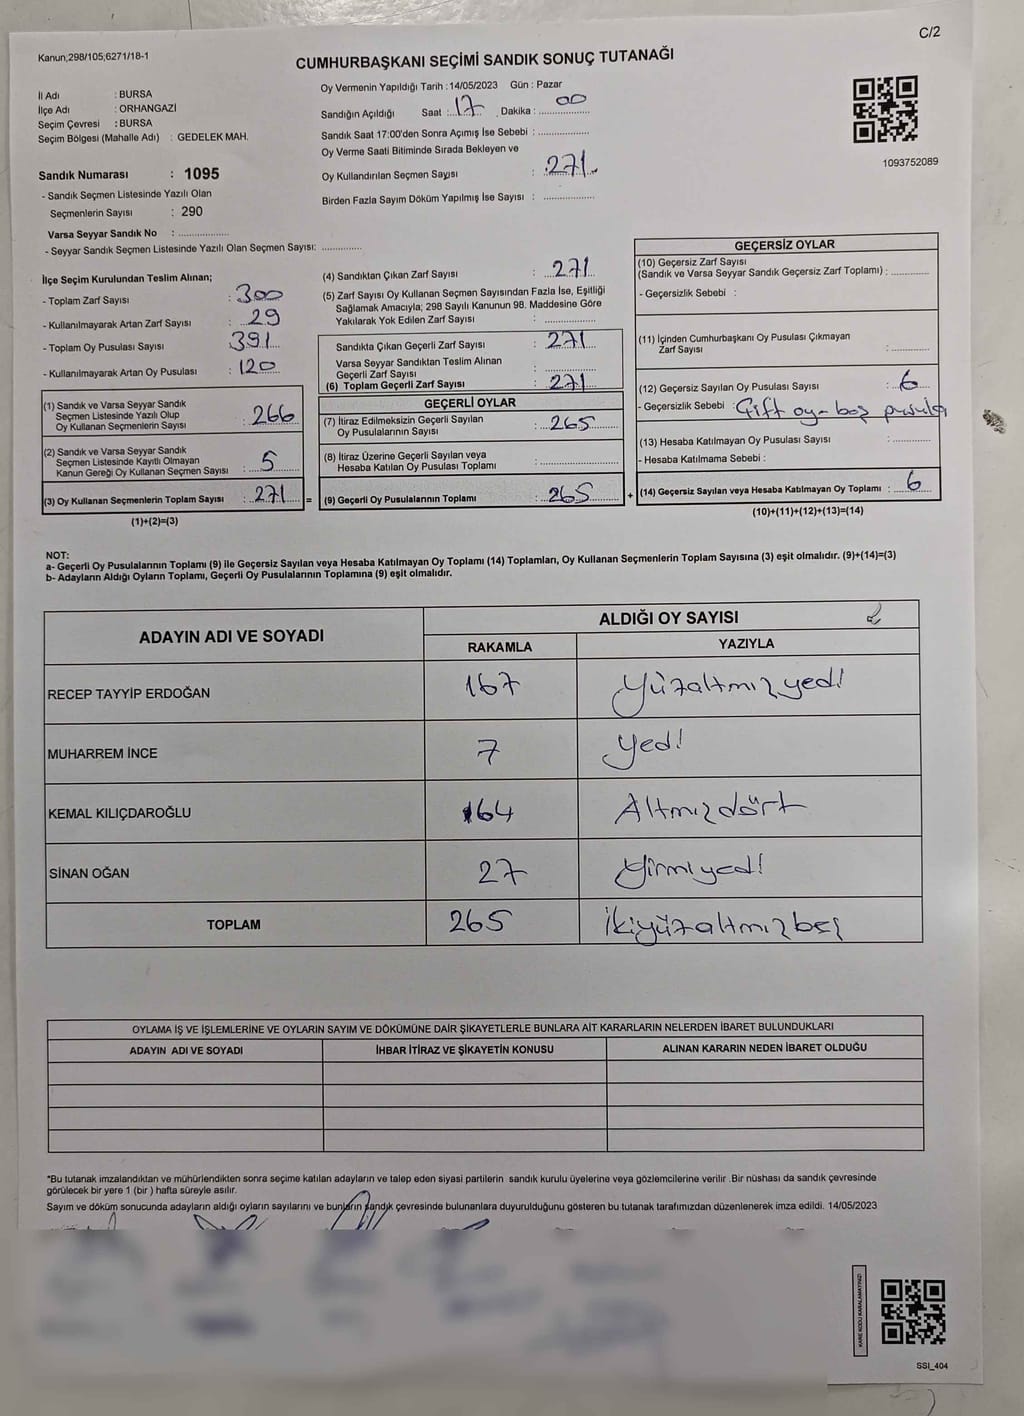 C/2
Kanun;298/105;6271/18-1
CUMHURBAŞKANI SEÇİMİ SANDIK SONUÇ TUTANAĞI
İl Adı : BURSA
İlçe Adı : ORHANGAZİ
Seçim Çevresi : BURSA
Seçim Bölgesi (Mahalle Adı) : GEDELEK MAH.
Sandık Numarası : 1095
- Sandık Seçmen Listesinde Yazılı Olan
Seçmenlerin Sayısı : 290
Varsa Seyyar Sandık No : ....................
- Seyyar Sandık Seçmen Listesinde Yazılı Olan Seçmen Sayısı: ...............
Oy Vermenin Yapıldığı Tarih :14/05/2023 Gün : Pazar
Sandığın Açıldığı Saat : 17 . Dakika : 00
Sandık Saat 17:00'den Sonra Açımış İse Sebebi : ....................
Oy Verme Saati Bitiminde Sırada Bekleyen ve
Oy Kullandırılan Seçmen Sayısı : 271
Birden Fazla Sayım Döküm Yapılmış İse Sayısı : ................
1093752089
İlçe Seçim Kurulundan Teslim Alınan;
- Toplam Zarf Sayısı : 300
- Kullanılmayarak Artan Zarf Sayısı : 29
- Toplam Oy Pusulası Sayısı : 391
- Kullanılmayarak Artan Oy Pusulası : 120
(1) Sandık ve Varsa Seyyar Sandık
Seçmen Listesinde Yazılı Olup
Oy Kullanan Seçmenlerin Sayısı : 266
(2) Sandık ve Varsa Seyyar Sandık
Seçmen Listesinde Kayıtlı Olmayan
Kanun Gereği Oy Kullanan Seçmen Sayısı : 5
(3) Oy Kullanan Seçmenlerin Toplam Sayısı : 271 =
(1)+(2)=(3)
(4) Sandıktan Çıkan Zarf Sayısı : 271
(5) Zarf Sayısı Oy Kullanan Seçmen Sayısından Fazla İse, Eşitliği
Sağlamak Amacıyla; 298 Sayılı Kanunun 98. Maddesine Göre
Yakılarak Yok Edilen Zarf Sayısı : ................
Sandıkta Çıkan Geçerli Zarf Sayısı : 271
Varsa Seyyar Sandıktan Teslim Alınan
Geçerli Zarf Sayısı : ................
(6) Toplam Geçerli Zarf Sayısı : 271
GEÇERLİ OYLAR
(7) İtiraz Edilmeksizin Geçerli Sayılan
Oy Pusulalarının Sayısı : 265
(8) İtiraz Üzerine Geçerli Sayılan veya
Hesaba Katılan Oy Pusulası Toplamı : ................
(9) Geçerli Oy Pusulalarının Toplamı : 265 +
GEÇERSİZ OYLAR
(10) Geçersiz Zarf Sayısı
(Sandık ve Varsa Seyyar Sandık Geçersiz Zarf Toplamı) : ............
- Geçersizlik Sebebi :
(11) İçinden Cumhurbaşkanı Oy Pusulası Çıkmayan
Zarf Sayısı : ............
(12) Geçersiz Sayılan Oy Pusulası Sayısı : 6
- Geçersizlik Sebebi : Çift oy - boş pusula
(13) Hesaba Katılmayan Oy Pusulası Sayısı : ............
- Hesaba Katılmama Sebebi :
(14) Geçersiz Sayılan veya Hesaba Katılmayan Oy Toplamı : 6
(10)+(11)+(12)+(13)=(14)
NOT:
a- Geçerli Oy Pusulalarının Toplamı (9) ile Geçersiz Sayılan veya Hesaba Katılmayan Oy Toplamı (14) Toplamları, Oy Kullanan Seçmenlerin Toplam Sayısına (3) eşit olmalıdır. (9)+(14)=(3)
b- Adayların Aldığı Oyların Toplamı, Geçerli Oy Pusulalarının Toplamına (9) eşit olmalıdır.
ADAYIN ADI VE SOYADI ALDIĞI OY SAYISI
RAKAMLA YAZIYLA
RECEP TAYYİP ERDOĞAN 167 Yüzaltmızyedi
MUHARREM İNCE 7 Yedi
KEMAL KILIÇDAROĞLU 64 Altmızdört
SİNAN OĞAN 27 Yirmiyedi
TOPLAM 265 İkiyüzaltmızbeş
OYLAMA İŞ VE İŞLEMLERİNE VE OYLARIN SAYIM VE DÖKÜMÜNE DAİR ŞİKAYETLERLE BUNLARA AİT KARARLARIN NELERDEN İBARET BULUNDUKLARI
ADAYIN ADI VE SOYADI İHBAR İTİRAZ VE ŞİKAYETİN KONUSU ALINAN KARARIN NEDEN İBARET OLDUĞU
*Bu tutanak imzalandıktan ve mühürlendikten sonra seçime katılan adayların ve talep eden siyasi partilerin sandık kurulu üyelerine veya gözlemcilerine verilir .Bir nüshası da sandık çevresinde
görülecek bir yere 1 (bir ) hafta süreyle asılır.
Sayım ve döküm sonucunda adayların aldığı oyların sayılarını ve bunların sandık çevresinde bulunanlara duyurulduğunu gösteren bu tutanak tarafımızdan düzenlenerek imza edildi. 14/05/2023
KARE KODU KARALAMAYINIZ!
SSI_404